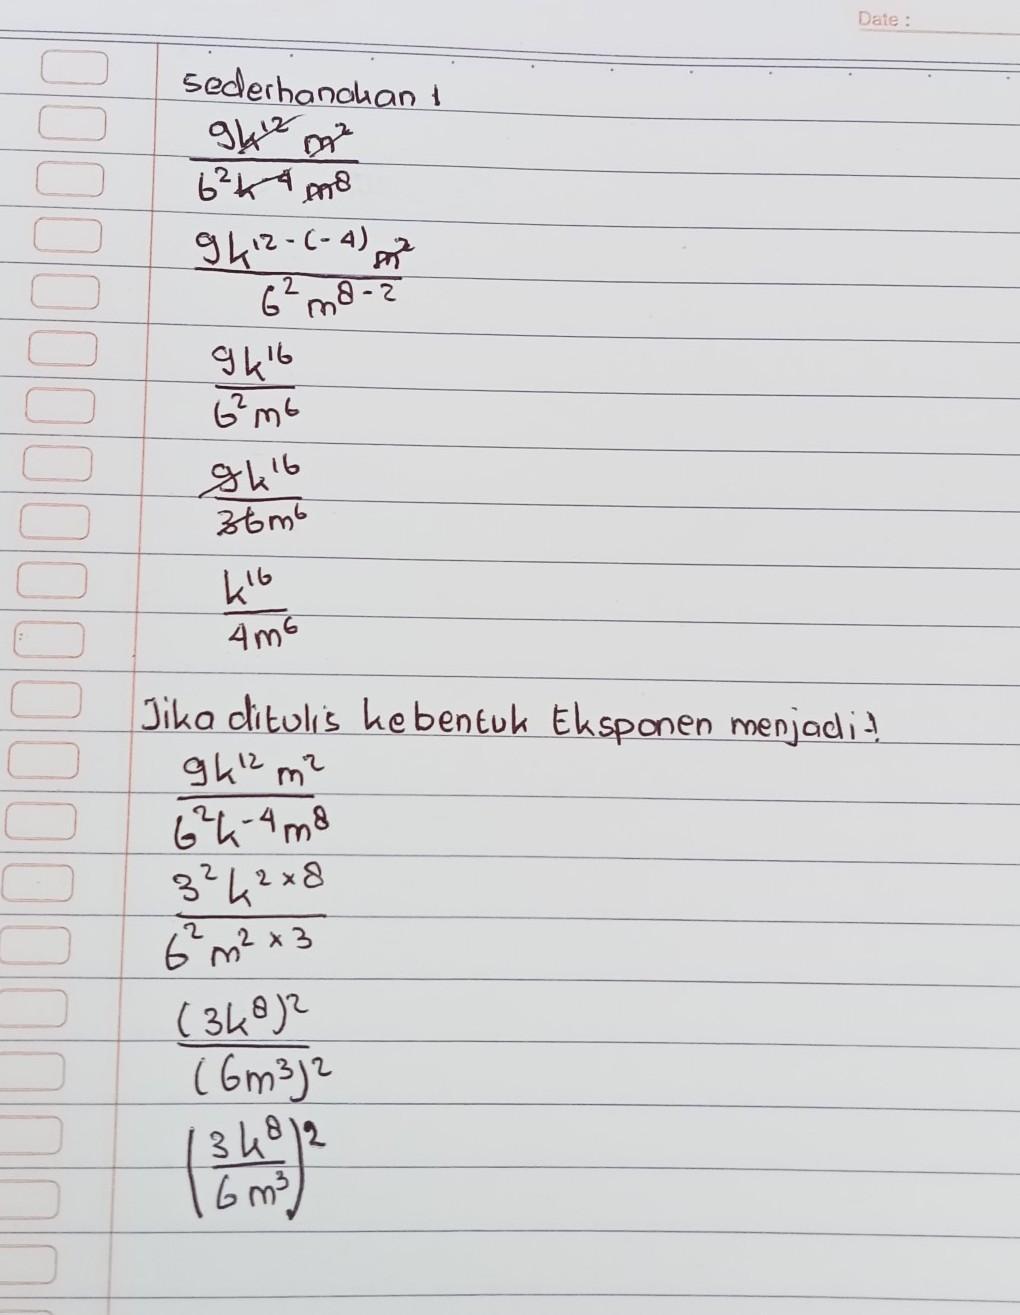 Date :
sederhanakan !
9k¹² m²
6²k⁻⁴ m⁸
9k¹²⁻⁽⁻⁴⁾ m²
6² m⁸⁻²
9k¹⁶
6²m⁶
9k¹⁶
36m⁶
k¹⁶
4m⁶
Jika ditulis kebentuk Eksponen menjadi!
9k¹² m²
6²k⁻⁴m⁸
3² k² ˣ ⁸
6² m² ˣ ³
(3k⁸)²
(6m³)²
(3k⁸)²
6m³